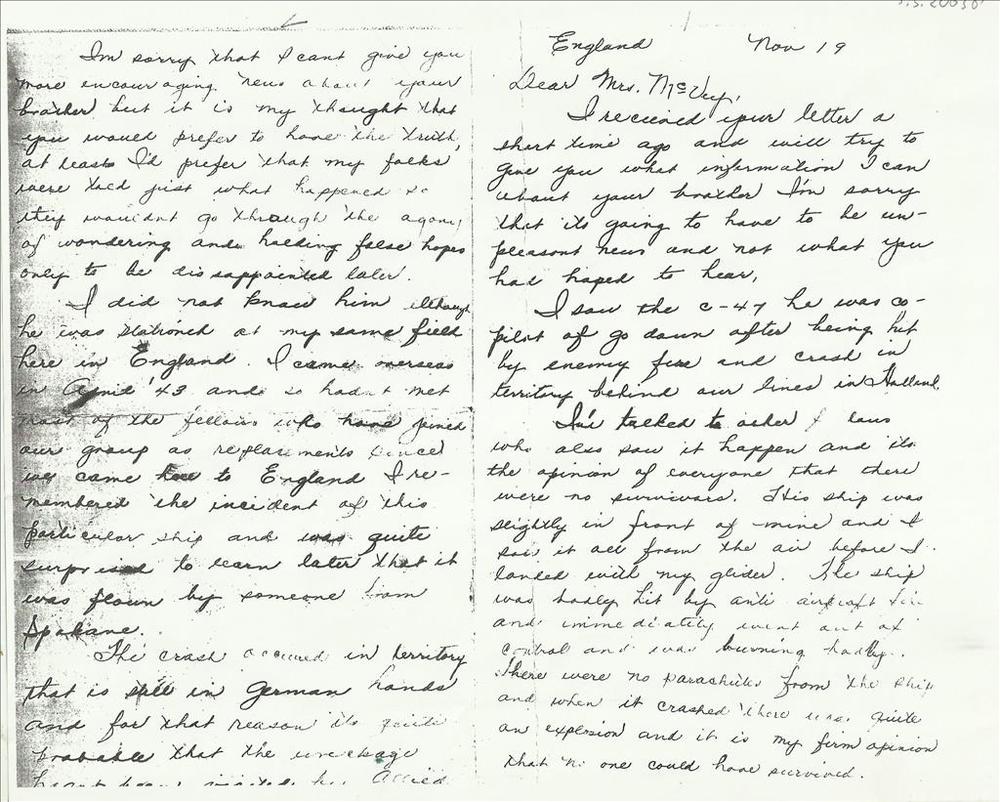 England Nov 19
Dear Mrs. McVey,
I received your letter a
short time ago and will try to
give you what information I can
about your brother I'm sorry
that its going to have to be un-
pleasant news and not what you
had hoped to hear,
I saw the C-47 he was co-
pilot of go down after being hit
by enemy fire and crash in
territory behind our lines in Holland.
I've talked to other
who also saw it happen and its
the opinion of everyone that there
were no survivors. His ship was
slightly in front of mine and I
saw it all from the air before I
landed with my glider. The ship
was badly hit by anti aircraft fire
and immediately went out of
control and was burning badly.
There were no parachutes from the ship
and when it crashed there was quite
an explosion and it is my firm opinion
that no one could have survived.
I'm sorry that I cant give you
more encouraging news about your
brother but it is my thought that
you would prefer to have the truth,
at leasts I'd prefer that my folks
were told just what happened so
they wouldnt go through the agony
of wondering and holding false hopes
only to be dissappointed later.
I did not know him although
he was stationed at my same field
here in England. I came overseas
in April '43 and so hadn't met
most of the fellows who have joined
our group as replacements since
we came to England I re-
membered the incident of this
particular ship and was quite
surprised to learn later that it
was flown by someone from
Spokane.
The crash occured in territory
that is still in German hands
and for that reason its quite
probable that the wreckage
hasnt been visited by Allied